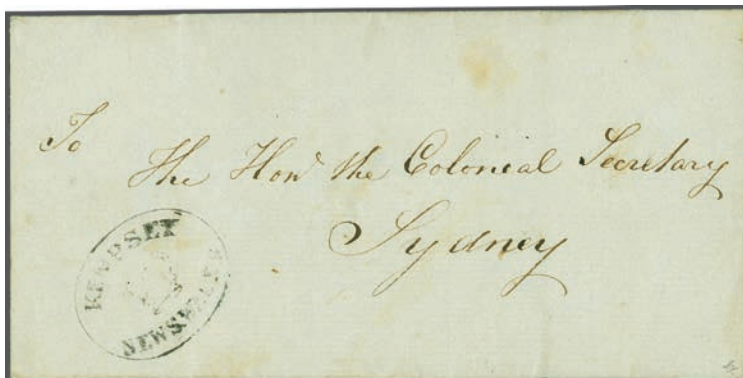 To
The Hon. the Colonial Secretary
Sydney
KEMPSEY
NEWS.WALES